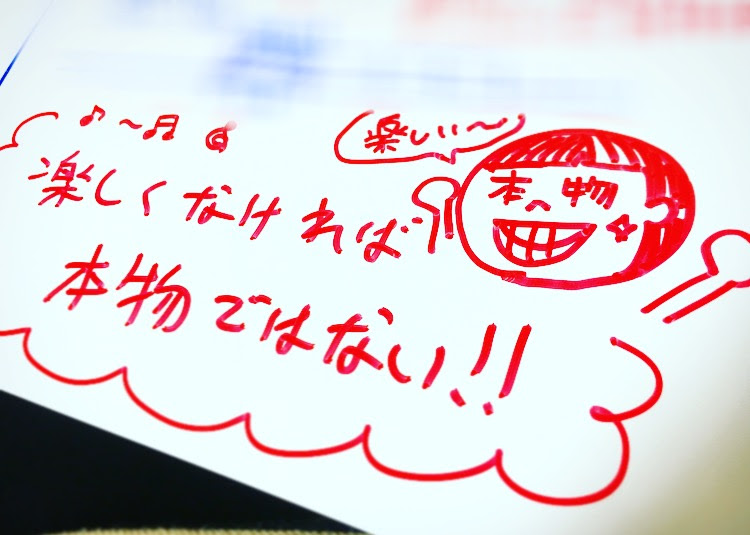 楽しい〜
本物
楽しくなければ
本物ではない!!